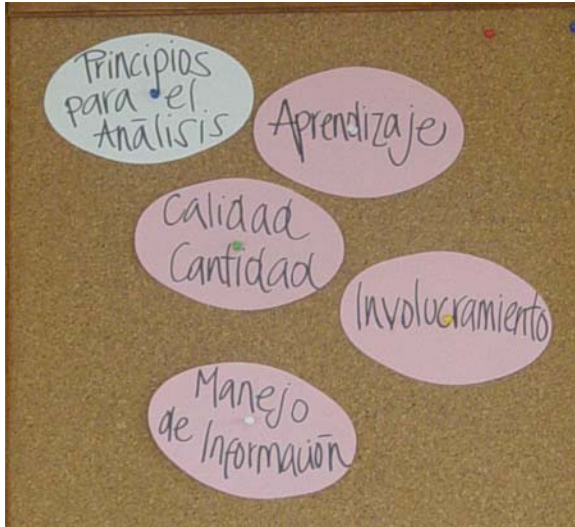 Principios
para el
Análisis
Aprendizaje
Calidad
Cantidad
Involucramiento
Manejo
de Información